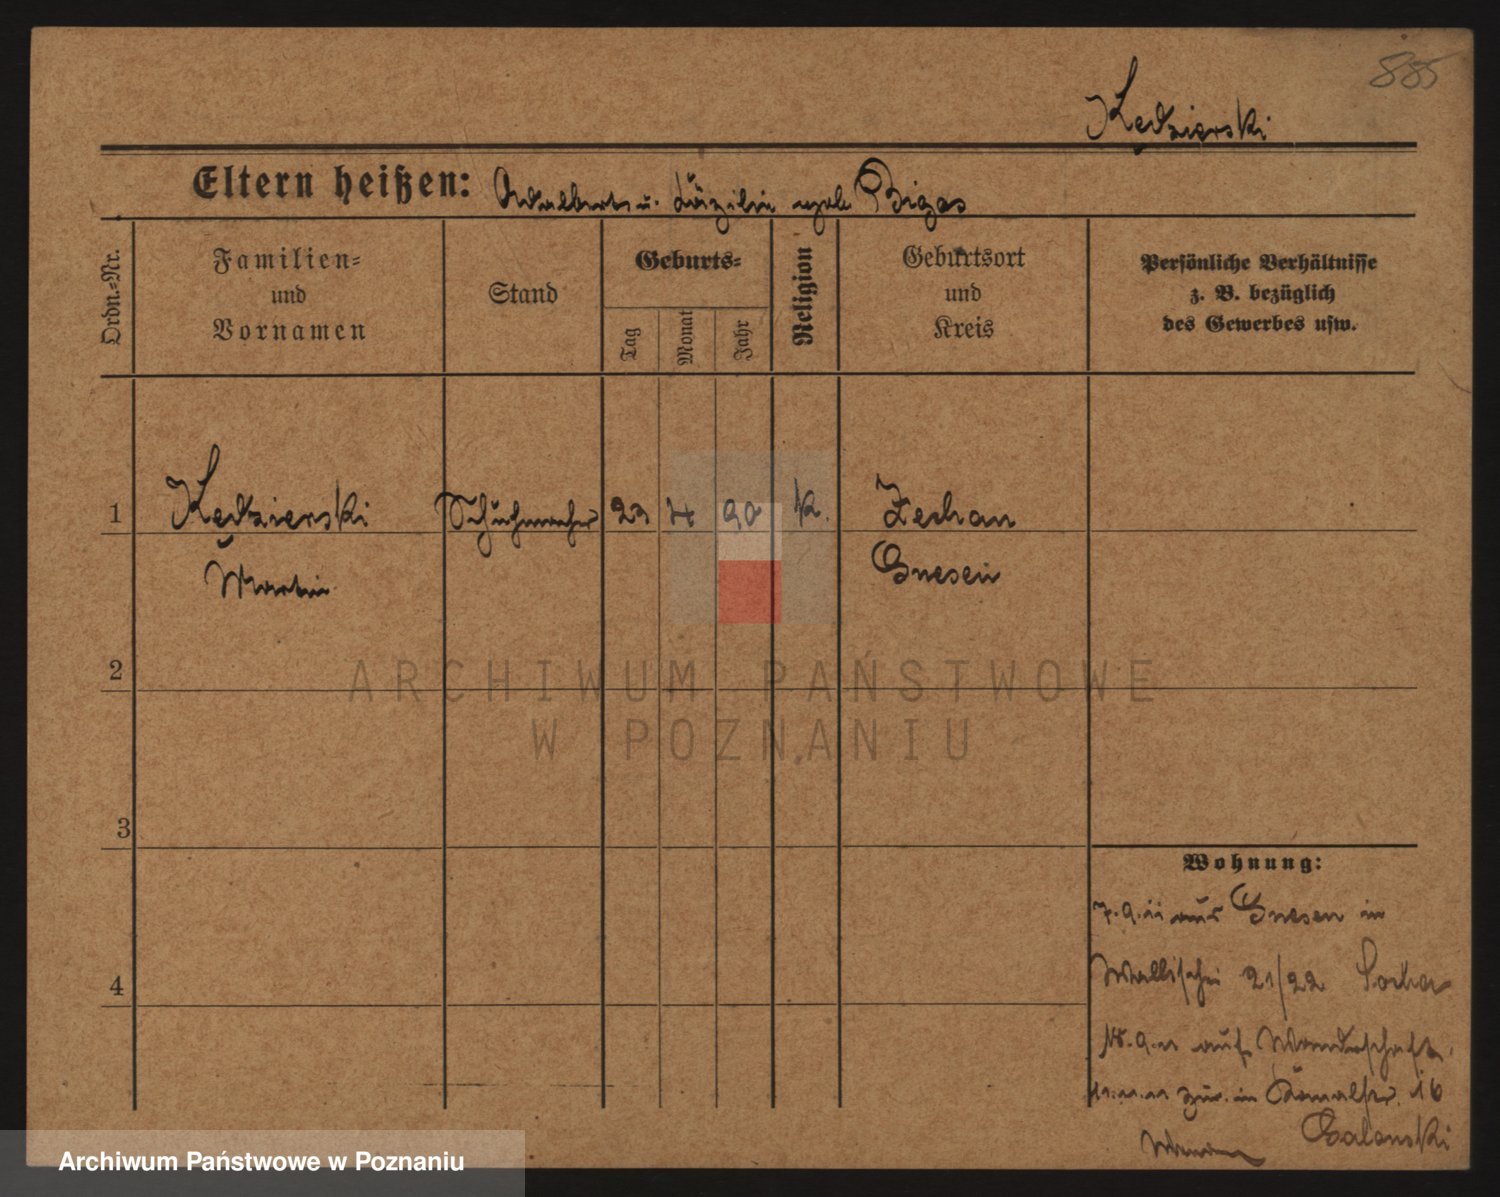 885
Kędzierski
Eltern heißen: Adalbert u. Cäzilie geb. Bigos
Ordn.-Nr.
Familien-
und
Vornamen
Stand
Geburts-
Tag
Monat
Jahr
Religion
Geburtsort
und
Kreis
Persönliche Verhältnisse
z. B. bezüglich
des Gewerbes usw.
1 Kędzierski Schuhmacher 23 4 90 k. Zechau
Martin Gnesen
2
3
4
Wohnung:
7.9.11 aus Gnesen in
Wallischei 21/22 Socha
18.9.11 auf Wanderschaft.
11.11.11 zur. in 16
ARCHIWUM PAŃSTWOWE
W POZNANIU
Archiwum Państwowe w Poznaniu